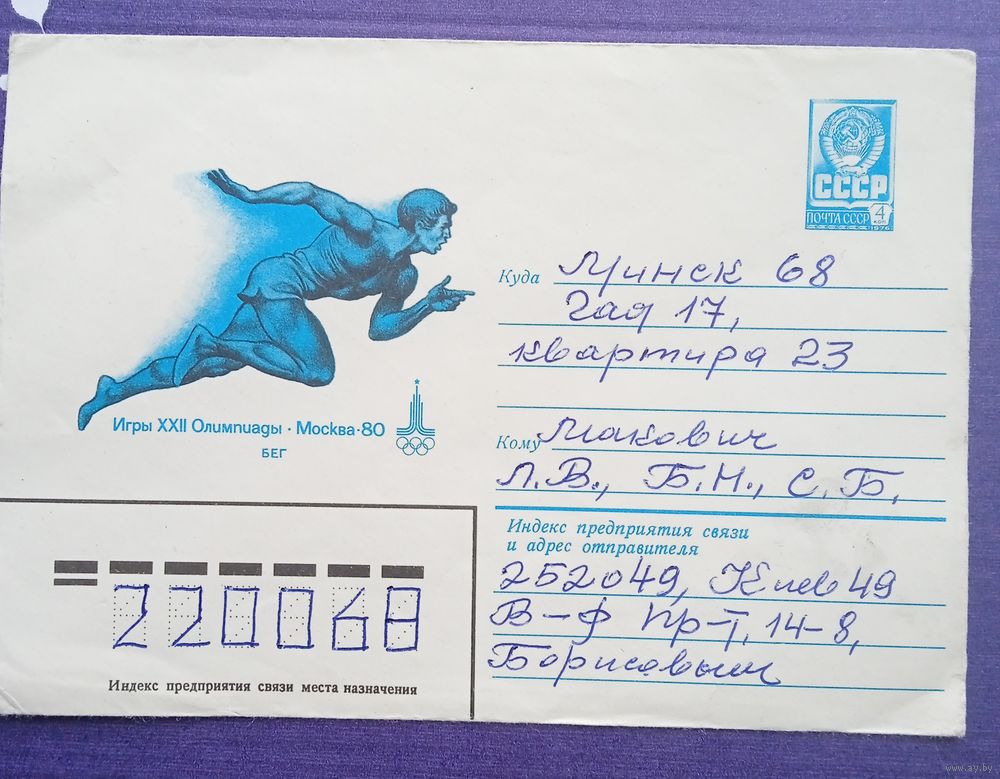 СССР
ПОЧТА СССР 4 коп
1976
Куда Минск 68
Гая 17,
квартира 23
Игры XXII Олимпиады · Москва·80
БЕГ
Кому Макович
Л.В., Б.Н., С.Б.
Индекс предприятия связи
и адрес отправителя
252049, Киев 49
В-Ф пр-т, 14-8,
Борисовым
220068
Индекс предприятия связи места назначения
www.ay.by